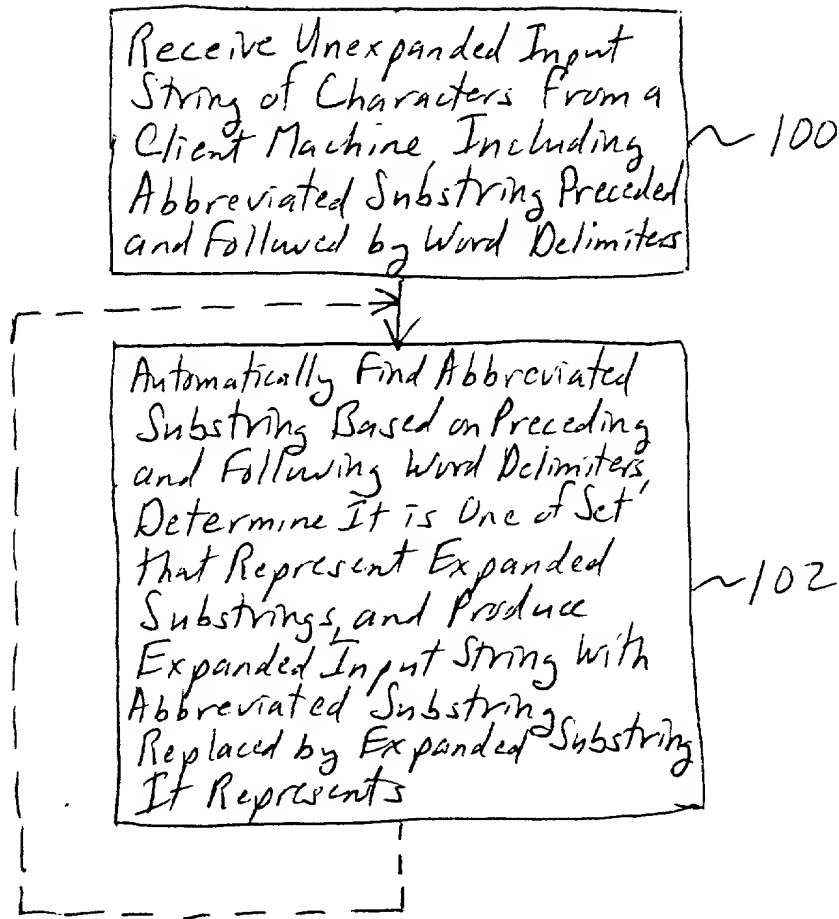 Receive Unexpanded Input
String of Characters From a
Client Machine, Including
Abbreviated Substring Preceded
and Followed by Word Delimiters
~ 100
Automatically Find Abbreviated
Substring Based on Preceding
and Following Word Delimiters,
Determine It is One of Set
that Represent Expanded
Substrings, and Produce
Expanded Input String With
Abbreviated Substring
Replaced by Expanded Substring
It Represents
~102